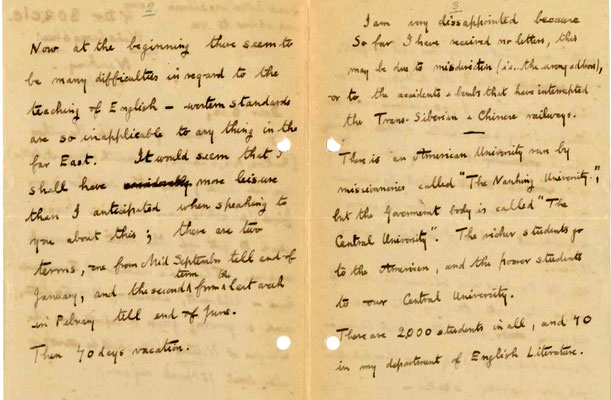 2
Now at the beginning there seem to
be many difficulties in regard to the
teaching of English – western standards
are so inapplicable to any thing in the
far East. It would seem that I
shall have considerably more leisure
than I anticipated when speaking to
you about this; there are two
terms, one from Mid September till end of
January, and the second term from the last week
in February till end of June.
Then 70 days vacation.
3
I am very dissappointed because
So far I have received no letters, this
may be due to misdirection (i.e. the wrong address),
or to the accidents & bombs that have interrupted
the Trans-Siberian & Chinese railways.
There is an American University run by
missionaries called "The Nanking University.",
but the Government body is called "The
Central University". The richer students go
to the American, and the poorer students
to our Central University.
There are 2,000 students in all, and 40
in my department of English Literature.